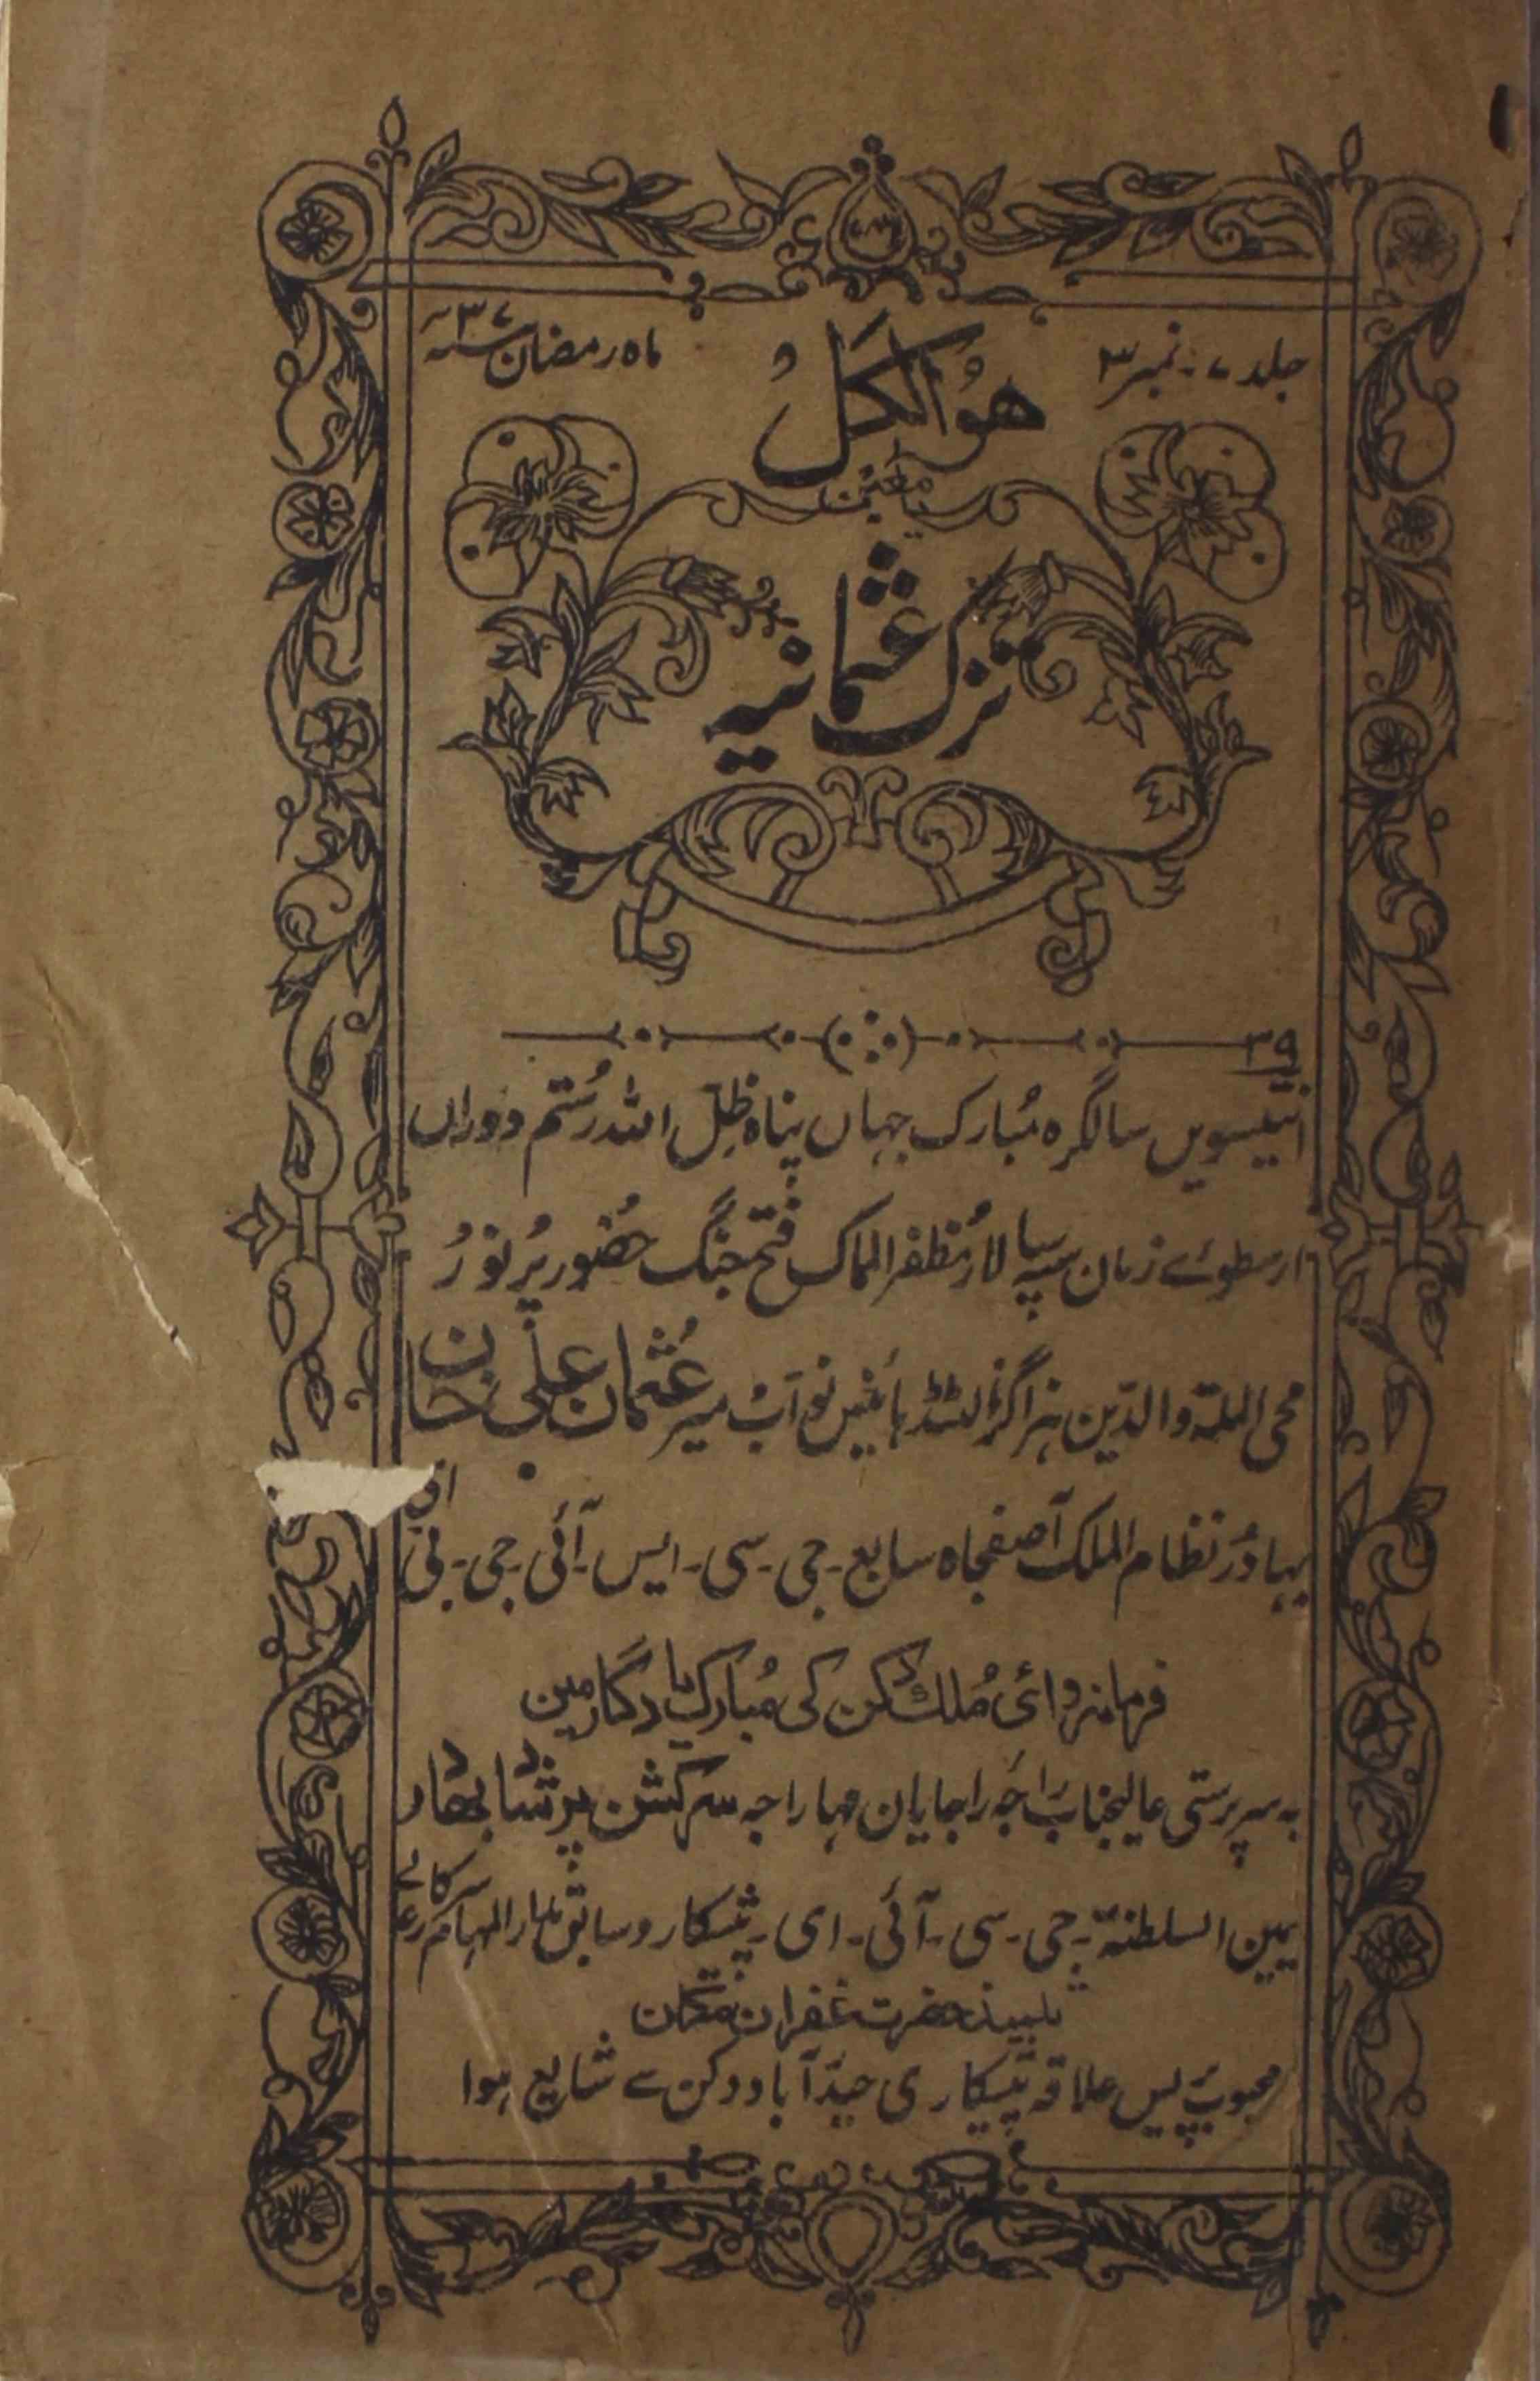 جلد ۷ - نمبر ۳
ماہ رمضان سنہ ۳۷
ھُوَ الکُلُ
یا معین
تزک عثمانیہ
۳۹
انتیسویں سالگرہ مُبارک جہاں پناہ ظلِّ اللہ رُستم دوراں
ارسطوئے زمان سپہ سالار مُظفر الممالک فتح جنگ حضُور پُر نُورُ
محی الملۃ والدّین ہز اگزالٹڈ ہائینس نوّابُ میر عُثمان علی خان
بہادُر نظام الملک آصفجاہ سابع - جی - سی - ایس - آئی - جی - بی
فرمانروائی مُلک دکن کی مُبارک یادگار مین
بہ سرپرستی عالیجناب راجہ راجایان مہاراجہ سر کشن پرشاد بہادر
یمین السلطنۃ - جی - سی - آئی - ای - پیشکار و سابق مدار المہام سرکار
تلمیذ حضرت غفران مکان
محبوب پریس علاقہ پیشکاری حیدرآباد دکن سے شایع ہوا